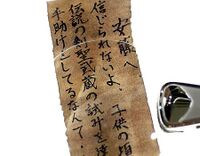 安藤へ
信じられないよ、子供の頃
伝説の剣聖武蔵の試斗を
手助けしてるなんて。